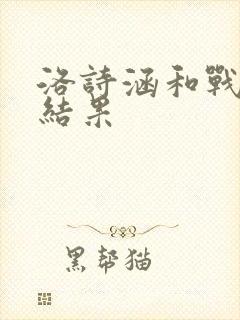 洛詩涵和戰
結果
黑幫猫